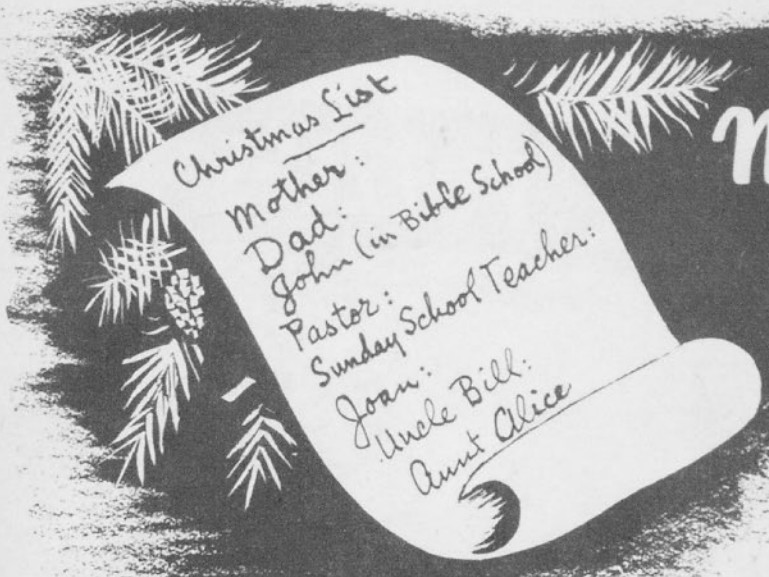 Christmas List
Mother:
Dad:
John (in Bible School)
Pastor:
Sunday School Teacher:
Joan:
Uncle Bill:
Aunt Alice